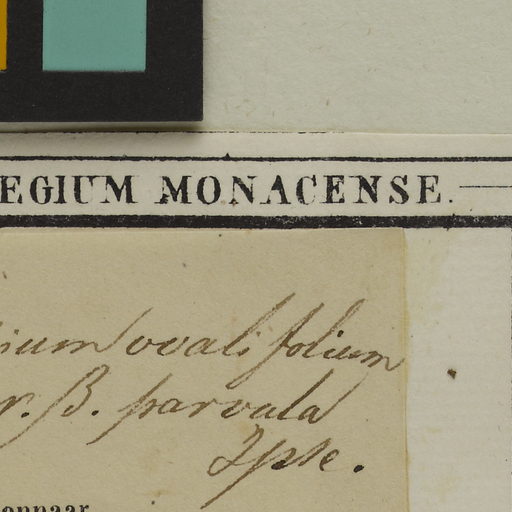 EGIUM MONACENSE.
ium ovalifolium
r. β. parvula
Zpke.
onnaar